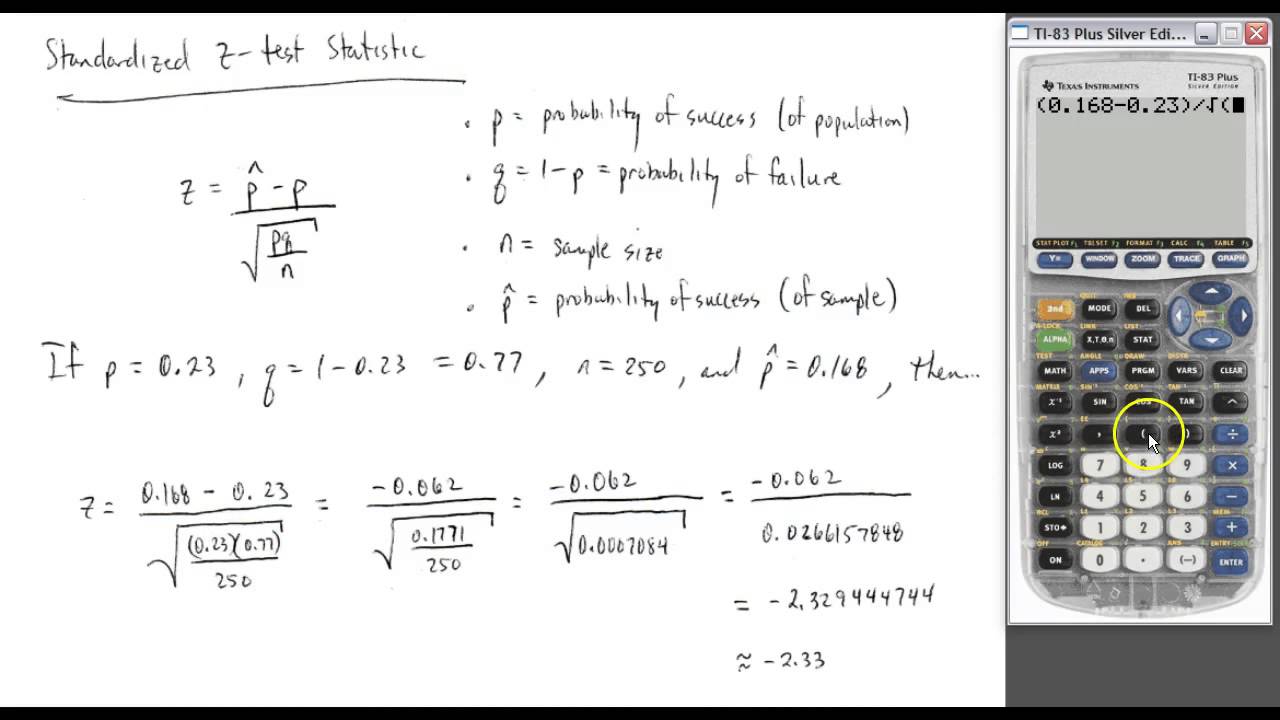 Standardized z-test Statistic
z = p̂ - p / √(pq/n)
• p = probability of success (of population)
• q = 1-p = probability of failure
• n = sample size
• p̂ = probability of success (of sample)
If p = 0.23, q = 1-0.23 = 0.77, n = 250, and p̂ = 0.168, then...
z = 0.168 - 0.23 / √((0.23)(0.77)/250) = -0.062 / √(0.1771/250) = -0.062 / √0.0007084 = -0.062 / 0.0266157848
= -2.329444744
≈ -2.33
TI-83 Plus Silver Edi...
TEXAS INSTRUMENTS
TI-83 Plus
SILVER EDITION
(0.168-0.23)/√(
STAT PLOT F1 TBLSET F2 FORMAT F3 CALC F4 TABLE F5
Y= WINDOW ZOOM TRACE GRAPH
QUIT INS
2nd MODE DEL
A-LOCK LINK LIST
ALPHA X,T,Θ,n STAT
TEST ANGLE DRAW DISTR
MATH APPS PRGM VARS CLEAR
MATRIX SIN⁻¹ COS⁻¹ TAN⁻¹
x⁻¹ SIN COS TAN ^
EE
x² , ( ) ÷
LOG 7 8 9 ×
LN 4 5 6 −
RCL L1 L2 L3 MEM
STO▸ 1 2 3 +
OFF CATALOG ANS ENTRY
ON 0 . (−) ENTER